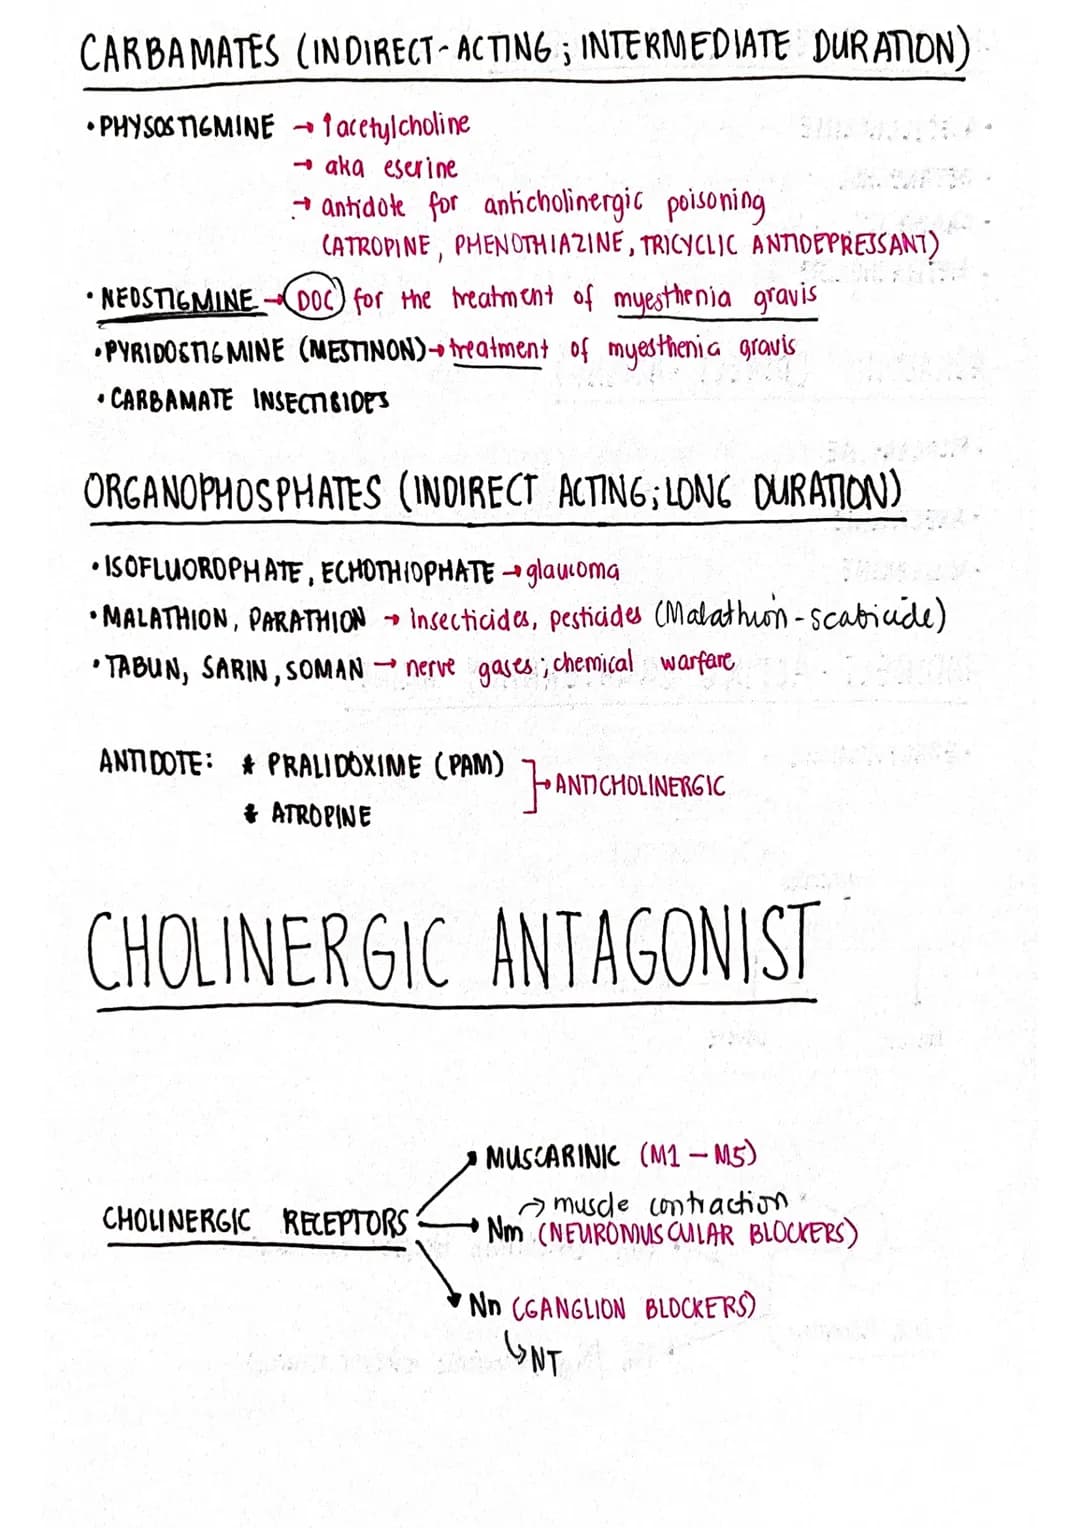 CARBAMATES (INDIRECT-ACTING; INTERMEDIATE DURATION)
• PHYSOSTIGMINE → ↑ acetylcholine
→ aka eserine
→ antidote for anticholinergic poisoning
(ATROPINE, PHENOTHIAZINE, TRICYCLIC ANTIDEPRESSANT)
• NEOSTIGMINE → DOC for the treatment of myesthenia gravis
• PYRIDOSTIGMINE (MESTINON) → treatment of myesthenia gravis
• CARBAMATE INSECTICIDES
ORGANOPHOSPHATES (INDIRECT ACTING; LONG DURATION)
• ISOFLUOROPHATE, ECHOTHIOPHATE → glaucoma
• MALATHION, PARATHION → insecticides, pesticides (Malathion - scabicide)
• TABUN, SARIN, SOMAN → nerve gases; chemical warfare
ANTIDOTE: * PRALIDOXIME (PAM)
* ATROPINE
→ ANTICHOLINERGIC
CHOLINERGIC ANTAGONIST
CHOLINERGIC RECEPTORS
MUSCARINIC (M1 - M5)
→ muscle contraction
Nm (NEUROMUSCULAR BLOCKERS)
Nn (GANGLION BLOCKERS)
↳ NT